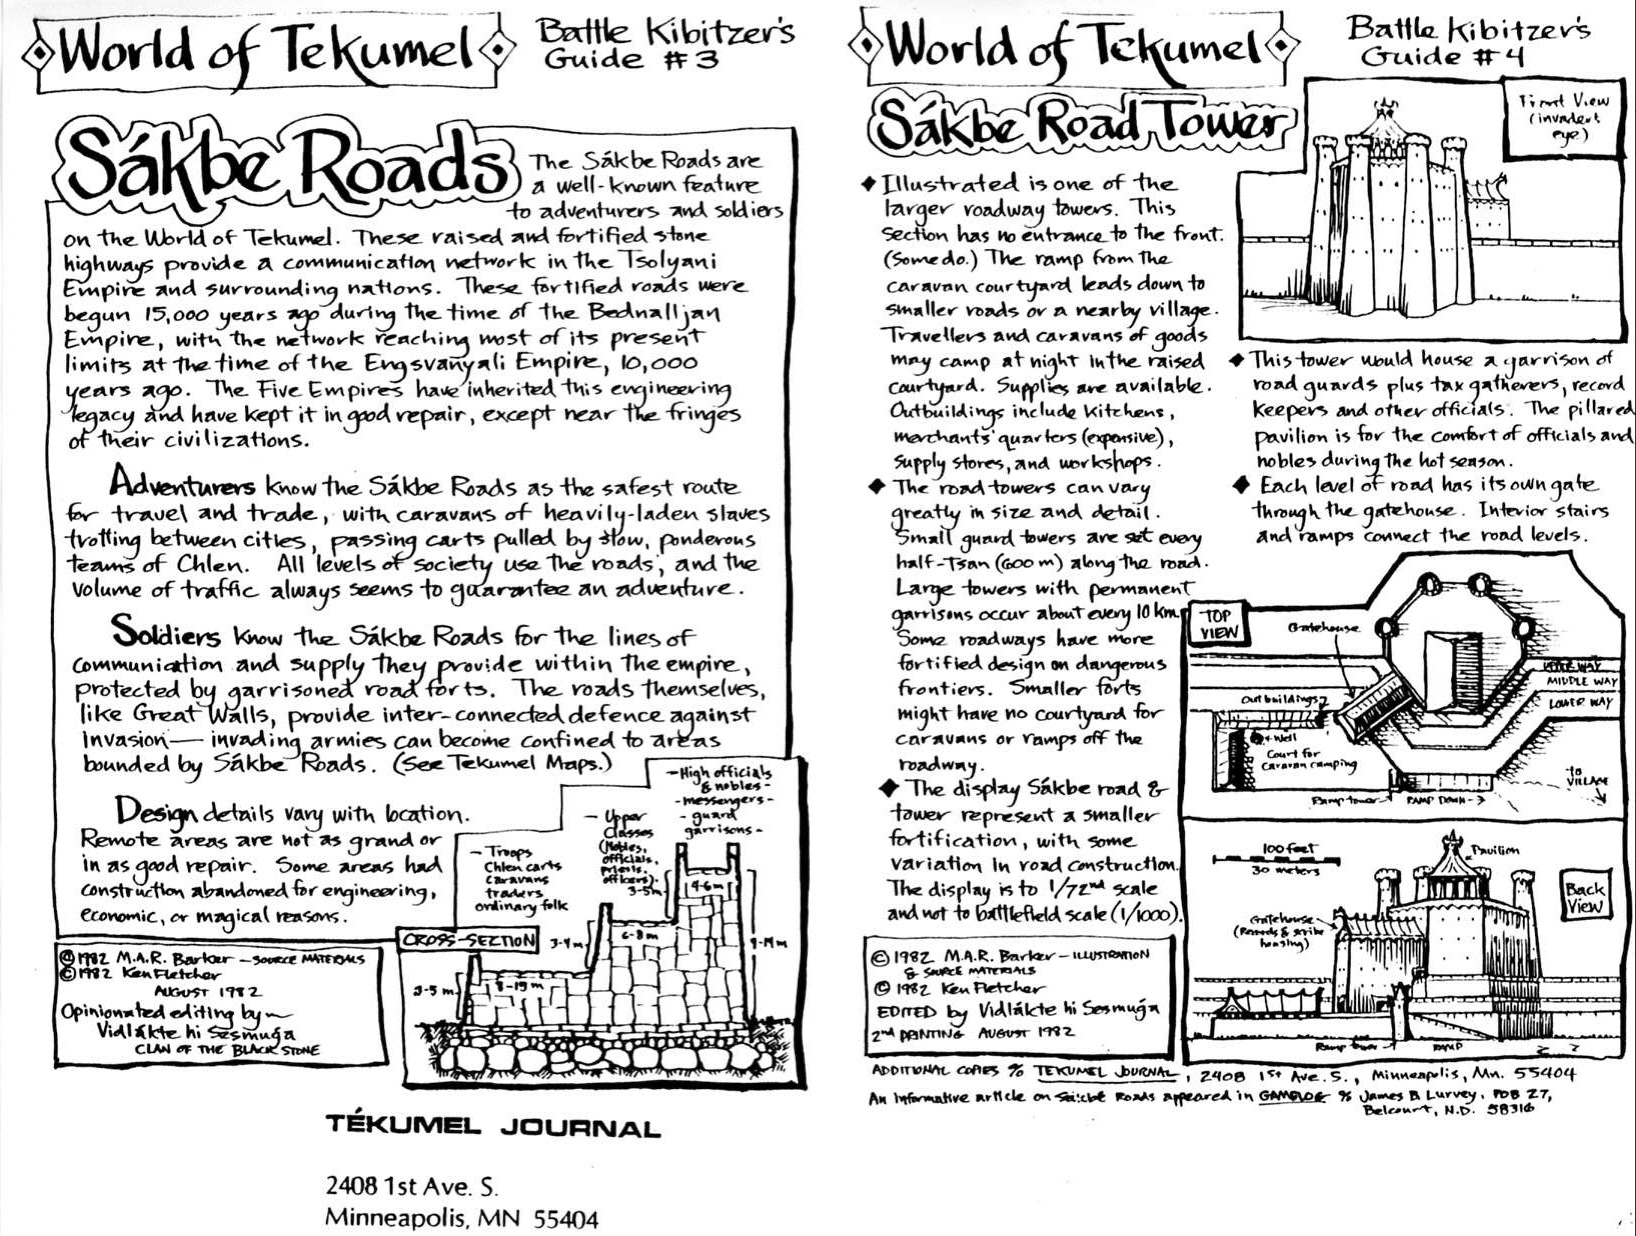 World of Tekumel
Battle Kibitzer's
Guide #3
Sákbe Roads
The Sákbe Roads are
a well-known feature
to adventurers and soldiers
on the World of Tekumel. These raised and fortified stone
highways provide a communication network in the Tsolyani
Empire and surrounding nations. These fortified roads were
begun 15,000 years ago during the time of the Bednalljan
Empire, with the network reaching most of its present
limits at the time of the Engsvanyali Empire, 10,000
years ago. The Five Empires have inherited this engineering
legacy and have kept it in good repair, except near the fringes
of their civilizations.
Adventurers know the Sákbe Roads as the safest route
for travel and trade, with caravans of heavily-laden slaves
trotting between cities, passing carts pulled by slow, ponderous
teams of Chlen. All levels of society use the roads, and the
volume of traffic always seems to guarantee an adventure.
Soldiers know the Sákbe Roads for the lines of
communication and supply they provide within the empire,
protected by garrisoned road forts. The roads themselves,
like Great Walls, provide inter-connected defence against
invasion— invading armies can become confined to areas
bounded by Sákbe Roads. (See Tekumel Maps.)
Design details vary with location.
Remote areas are not as grand or
in as good repair. Some areas had
construction abandoned for engineering,
economic, or magical reasons.
- High officials
& nobles -
- messengers -
- guard
garrisons -
- Upper
Classes
(Nobles,
officials,
priests,
officers)-
- Troops
Chlen carts
Caravans
traders
ordinary folk
CROSS-SECTION
3-5m
4-6m
3-4m
6-8m
3-5m
8-15m
9-14m
© 1982 M.A.R. Barker - SOURCE MATERIALS
© 1982 Ken Fletcher
AUGUST 1982
Opinionated editing by
Vidlákte hi Sesmuga
CLAN OF THE BLACK STONE
TÉKUMEL JOURNAL
2408 1st Ave. S.
Minneapolis, MN 55404
World of Tekumel
Battle Kibitzer's
Guide #4
Sákbe Road Tower
Front View
(invaders
eye)
◆ Illustrated is one of the
larger roadway towers. This
section has no entrance to the front.
(Some do.) The ramp from the
caravan courtyard leads down to
smaller roads or a nearby village.
Travellers and caravans of goods
may camp at night in the raised
courtyard. Supplies are available.
Outbuildings include kitchens,
merchants' quarters (expensive),
supply stores, and workshops.
◆ The road towers can vary
greatly in size and detail.
Small guard towers are set every
half-Tsan (600 m) along the road.
Large towers with permanent
garrisons occur about every 10 km.
Some roadways have more
fortified design on dangerous
frontiers. Smaller forts
might have no courtyard for
caravans or ramps off the
roadway.
◆ The display Sákbe road &
tower represent a smaller
fortification, with some
variation in road construction.
The display is to 1/72nd scale
and not to battlefield scale (1/1000).
◆ This tower would house a garrison of
road guards plus tax gatherers, record
keepers and other officials. The pillared
pavilion is for the comfort of officials and
nobles during the hot season.
◆ Each level of road has its own gate
through the gatehouse. Interior stairs
and ramps connect the road levels.
TOP
VIEW
Gatehouse
UPPER WAY
MIDDLE WAY
LOWER WAY
Outbuildings
Well
Court for
Caravan camping
Ramp tower
RAMP DOWN
to
VILLAGE
100 feet
30 meters
Pavilion
Back
View
Gatehouse
(Records & scribe
housing)
Ramp tower
RAMP
© 1982 M.A.R. Barker - ILLUSTRATION
& SOURCE MATERIALS
© 1982 Ken Fletcher
EDITED by Vidlákte hi Sesmuga
2nd PRINTING AUGUST 1982
ADDITIONAL COPIES % TEKUMEL JOURNAL, 2408 1st Ave. S., Minneapolis, Mn. 55404
An informative article on Sákbe Roads appeared in GAMELOG % James B Lurvey, POB 27,
Belcourt, N.D. 58316